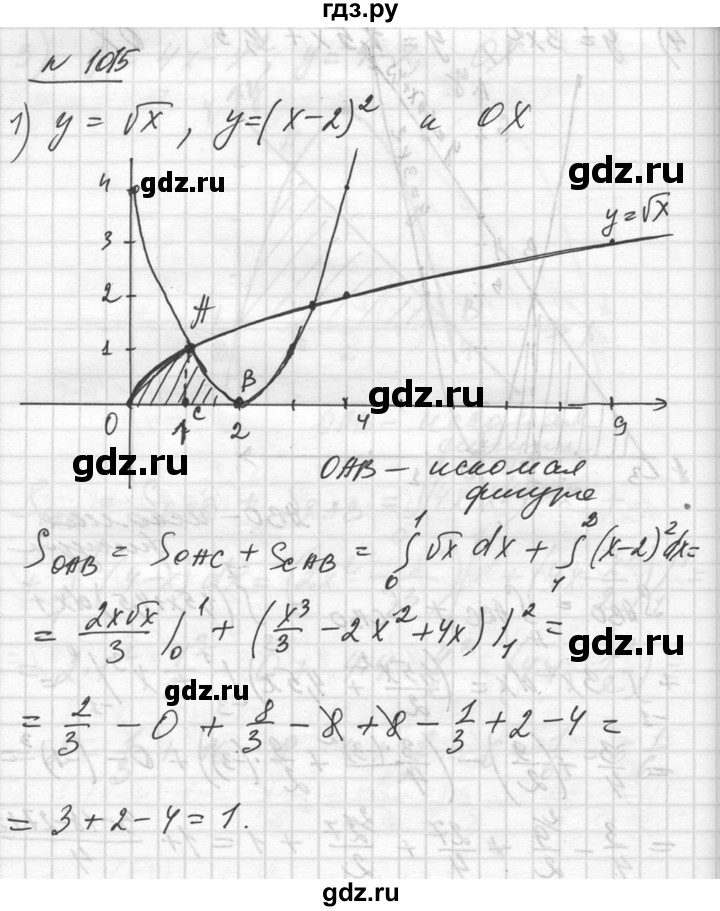 гдз.ру
N 1015
1) y = √x , y=(x-2)² и OX
gdz.ru
gdz.ru
4
3
2
1
y=√x
A
B
C
0
1
2
4
9
gdz.ru
gdz.ru
OAB - искомая
фигура
S_OAB = S_OAC + S_CAB = ∫₀¹ √x dx + ∫₁² (x-2)² dx =
= 2x√x/3 |₀¹ + (x³/3 - 2x² + 4x) |₁² =
gdz.ru
gdz.ru
= 2/3 - 0 + 8/3 - 8 + 8 - 1/3 + 2 - 4 =
= 3 + 2 - 4 = 1.
gdz.ru